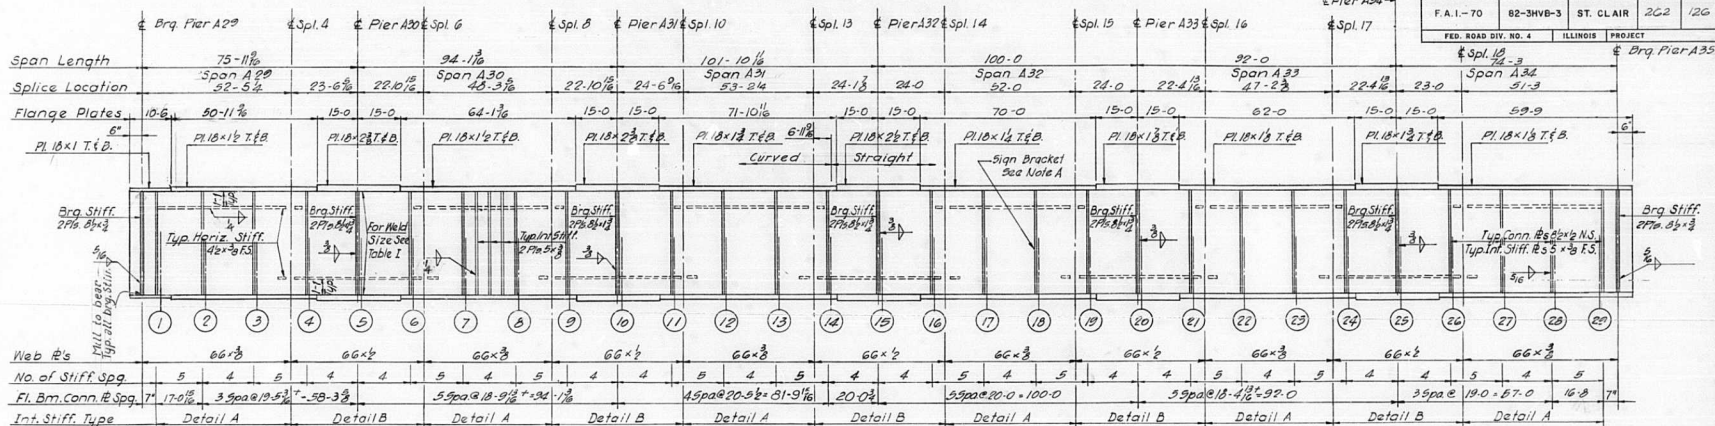 F.A.I.-70 82-3HVB-3 ST. CLAIR 262 126
FED. ROAD DIV. NO. 4 ILLINOIS PROJECT
℄ Brg. Pier A29 ℄ Spl. 4 ℄ Pier A30 ℄ Spl. 6 ℄ Spl. 8 ℄ Pier A31 ℄ Spl. 10 ℄ Spl. 13 ℄ Pier A32 ℄ Spl. 14 ℄ Spl. 15 ℄ Pier A33 ℄ Spl. 16 ℄ Spl. 17 ℄ Pier A34 ℄ Spl. 18 ℄ Brg. Pier A35
Span Length 75-11 9/16 94-1 3/16 101-10 11/16 100-0 92-0 74-3
Span A29 Span A30 Span A31 Span A32 Span A33 Span A34
Splice Location 52-5 1/4 23-6 5/16 22-10 15/16 48-3 5/16 22-10 15/16 24-6 9/16 53-2 1/4 24-1 7/8 24-0 52-0 24-0 22-4 13/16 47-2 3/8 22-4 13/16 23-0 51-3
Flange Plates 10-6 50-11 9/16 15-0 15-0 64-1 3/16 15-0 15-0 71-10 11/16 15-0 15-0 70-0 15-0 15-0 62-0 15-0 15-0 59-9
6" 6-11 9/16 6"
Pl. 18×1 T.&B. Pl. 18×1 1/2 T.&B. Pl. 18×2 3/8 T.&B. Pl. 18×1 1/2 T.&B. Pl. 18×2 3/8 T.&B. Pl. 18×1 3/4 T.&B. Pl. 18×2 1/2 T.&B. Pl. 18×1 1/4 T.&B. Pl. 18×1 7/8 T.&B. Pl. 18×1 1/8 T.&B. Pl. 18×1 3/4 T.&B. Pl. 18×1 1/8 T.&B.
Curved Straight
Sign Bracket
See Note A
Brg. Stiff.
2 Pls. 8 1/2×3/4
Typ. Horiz. Stiff.
4 1/2×3/8 F.S.
Brg. Stiff.
For Weld
Size See
Table I
Typ. Int. Stiff.
2 Pls. 5×3/8
Brg. Stiff.
Brg. Stiff.
Brg. Stiff.
Typ. Conn. ℞s 8 1/2×1/2 N.S.
Typ. Int. Stiff. ℞s 5×3/8 F.S.
Brg. Stiff.
2 Pls. 8 1/2×3/4
5/16 1/4 3/8 1/4 3/8 3/8 3/8 3/8 5/16 5/16
Mill to bear
Typ. all brg. Stiff.
1 2 3 4 5 6 7 8 9 10 11 12 13 14 15 16 17 18 19 20 21 22 23 24 25 26 27 28 29
Web ℞'s 66×3/8 66×1/2 66×3/8 66×1/2 66×3/8 66×1/2 66×3/8 66×1/2 66×3/8 66×1/2 66×3/8
No. of Stiff. Spg. 5 4 5 4 4 5 4 5 4 4 5 4 5 4 4 5 4 5 4 4 5 4 5 4 4 5 4 5
Fl. Bm. Conn. ℞ Spg. 7" 17-0 15/16 3 Spa @ 19-5 3/16+ = 58-3 5/8 5 Spa @ 18-9 13/16+ = 94-1 3/16 4 Spa @ 20-5 1/2 = 81-9 15/16 20-0 3/4 5 Spa @ 20-0 = 100-0 5 Spa @ 18-4 13/16+ = 92-0 3 Spa @ 19-0 = 57-0 16-8 7"
Int. Stiff. Type Detail A Detail B Detail A Detail B Detail A Detail B Detail A Detail B Detail A Detail B Detail A